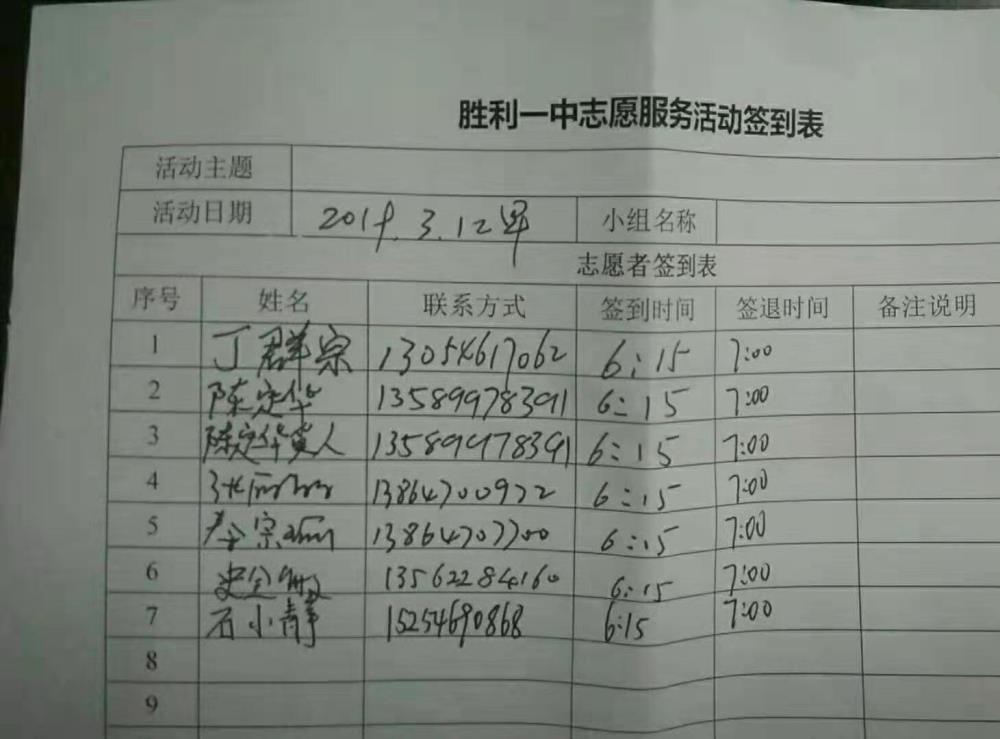 胜利一中志愿服务活动签到表
活动主题
活动日期 2019.3.12早 小组名称
志愿者签到表
序号 姓名 联系方式 签到时间 签退时间 备注说明
1 丁群宗 13054617062 6:15 7:00
2 陈定华 13589978391 6:15 7:00
3 陈定华家人 13589978391 6:15 7:00
4 13864700972 6:15 7:00
5 13864707700 6:15 7:00
6 13562284160 6:15 7:00
7 石小静 15254690868 6:15 7:00
8
9